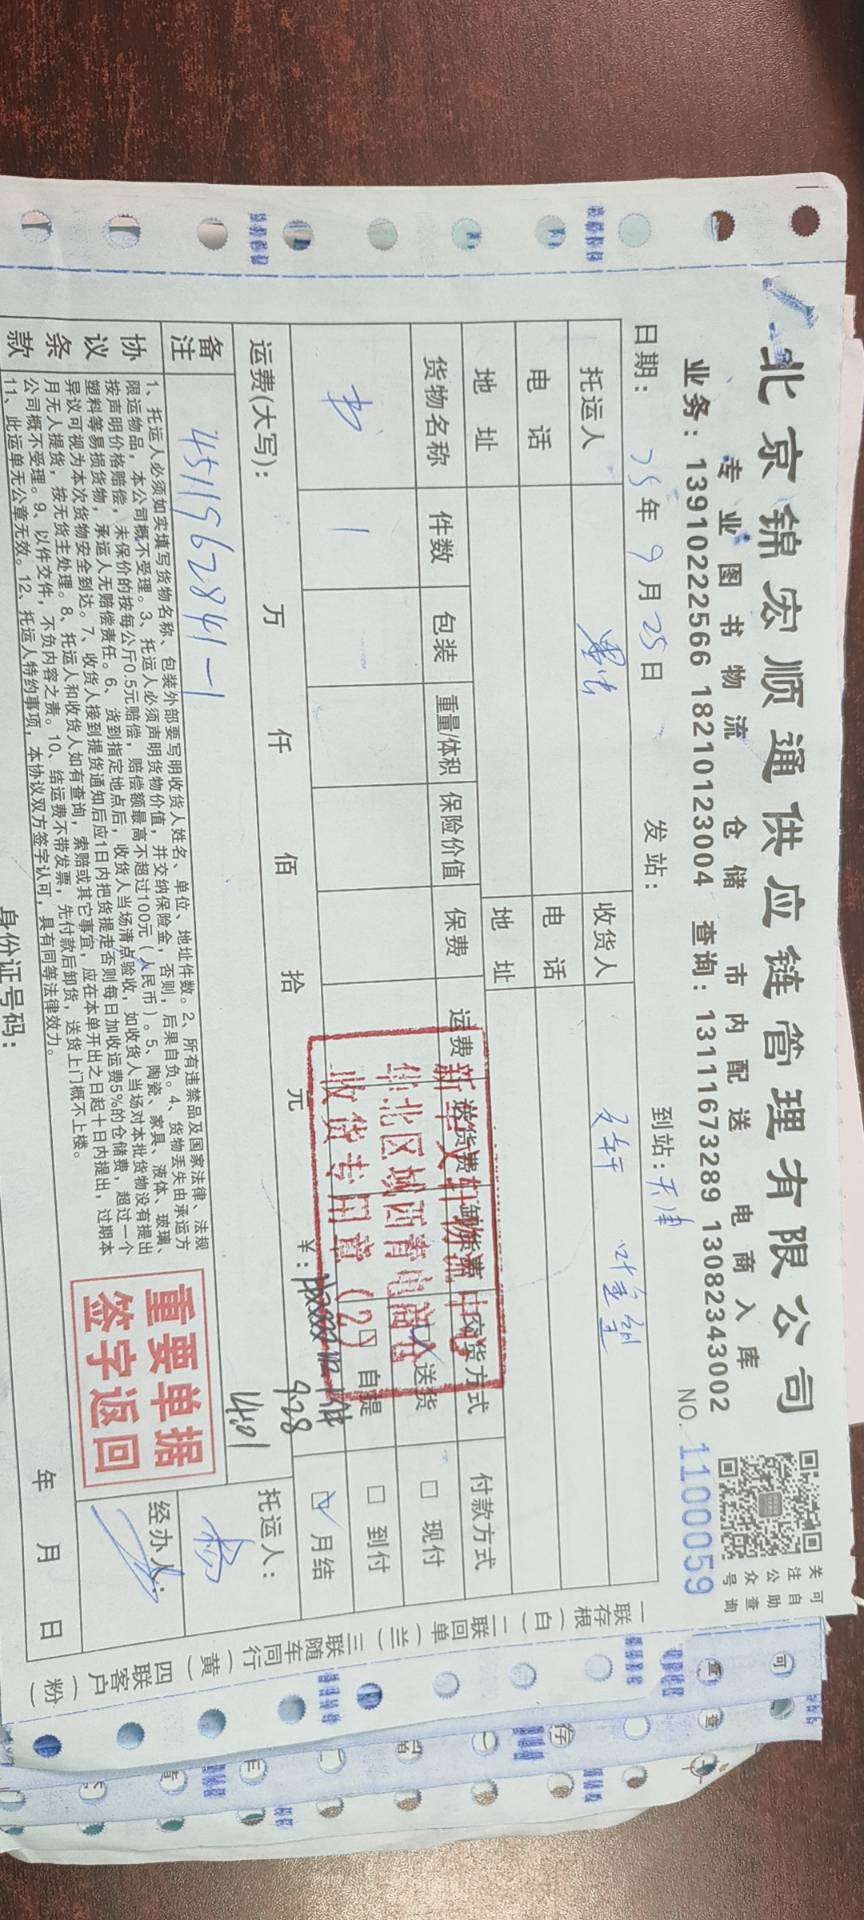 北京锦宏顺通供应链管理有限公司
关注公众号
可自助查询
专业图书物流 仓储 市内配送 电商入库
业务：13910222566 18210123004 查询：13111673289 13082343002
NO. 1100059
日期：25年9月25日 发站： 到站：天津
托运人 收货人 文轩
电话 电话
地址 地址
货物名称 件数 包装 重量/体积 保险价值 保费 运费 送货费 卸货费 交货方式 付款方式
书 1
送货 自提
现付 到付 月结
新华文轩物流中心
华北区域西青电商仓
收货专用章（2）
运费(大写)： 万 仟 佰 拾 元 ¥：
928
1401
备注 4511962841-1
托运人： 杨
经办人：
协议条款
1、托运人必须如实填写货物名称、包装外部要写明收货人姓名、单位、地址件数。2、所有违禁品及国家法律、法规
限运物品，本公司概不受理。3、托运人必须声明货物价值，并交纳保险金，否则，后果自负。4、货物丢失由承运方
按声明价格赔偿，未保价的按每公斤0.5元赔偿，赔偿额最高不超过100元（人民币）。5、陶瓷、家具、液体、玻璃、
塑料等易损货物，承运人无赔偿责任。6、货到指定地点后，收货人当场清点验收，如收货人当场对本批货物没有提出
异议可视为本次货物安全到达。7、收货人接到提货通知后应1日内把货提走否则每日加收运费5%的仓储费，超过一个
月无人提货，按无货主处理。8、托运人和收货人如有查询，索赔或其它事宜，应在本单开出之日起十日内提出，过期本
公司概不受理。9、以件交件，不负内容之责。10、结运费不带发票，先付款后卸货，送货上门概不上楼。
11、此运单无公章无效。12、托运人特约事项，本协议双方签字认可，具有同等法律效力。
重要单据
签字返回
身份证号码： 年 月 日
一联存根（白）二联回单（兰）三联随车同行（黄）四联客户（粉）